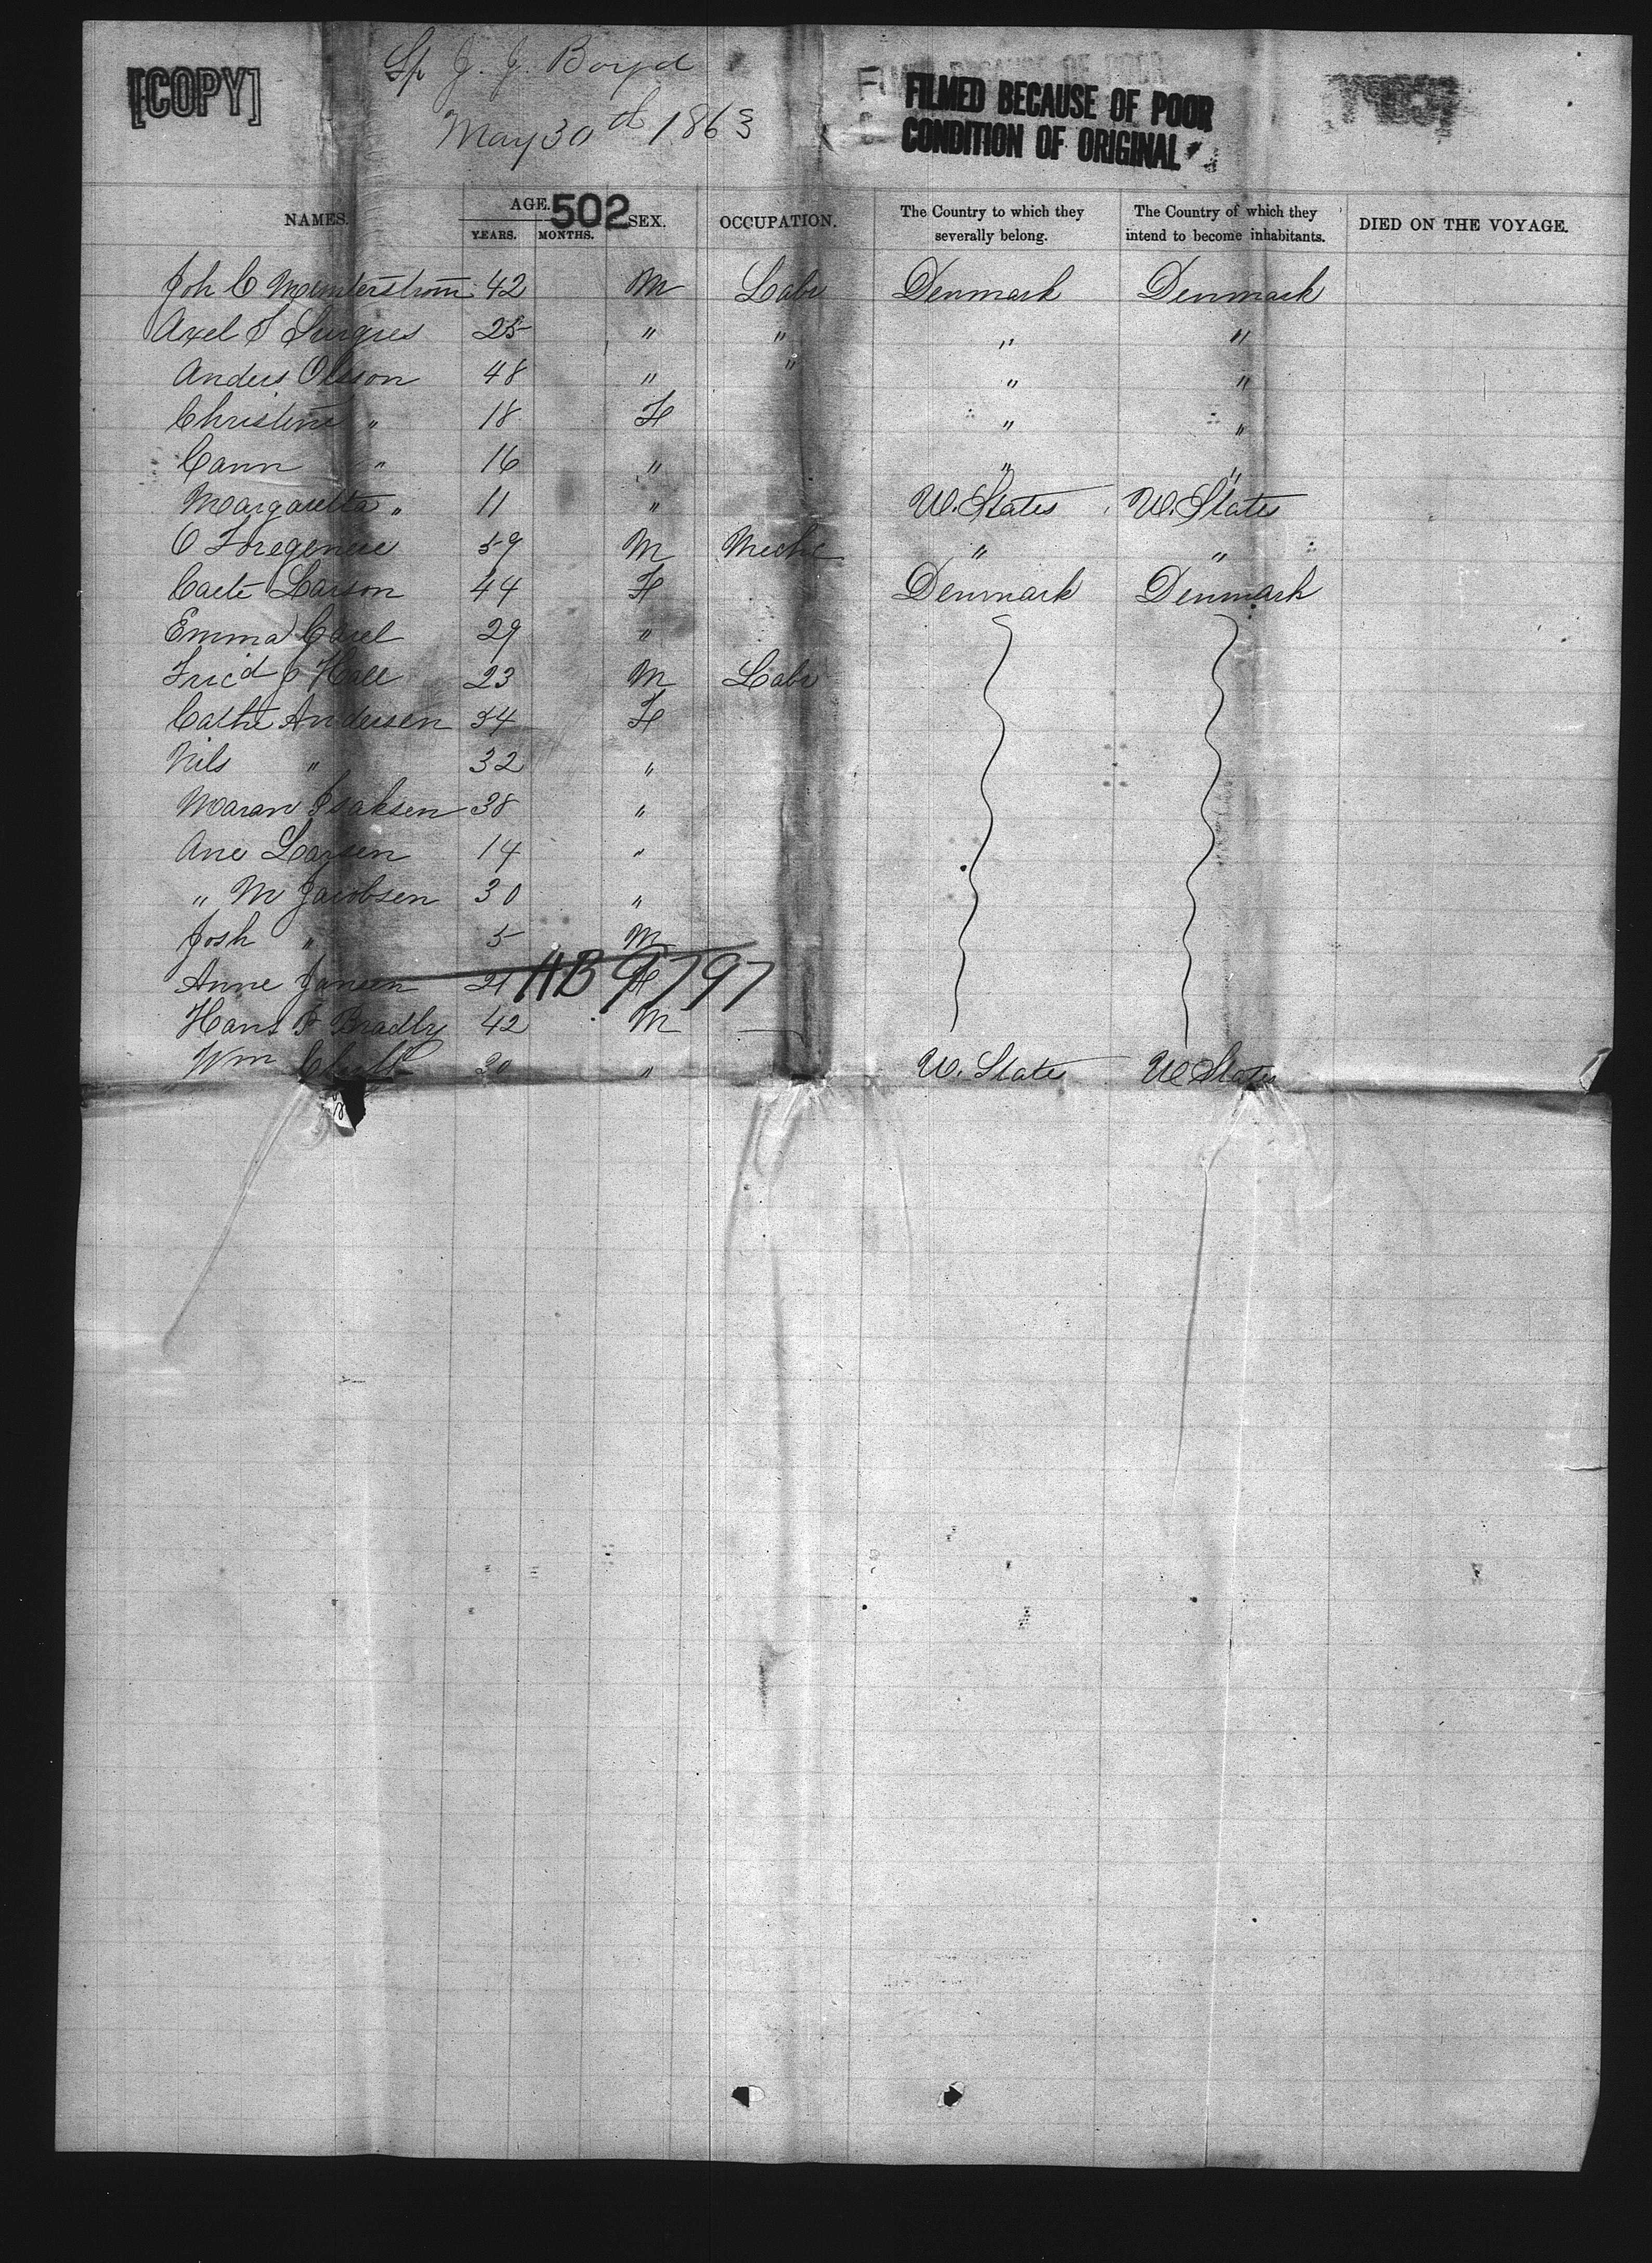 [COPY]
Sp J. J. Boyd
May 30th 1863
FILMED BECAUSE OF POOR
CONDITION OF ORIGINAL
502
NAMES. AGE. YEARS. MONTHS. SEX. OCCUPATION. The Country to which they severally belong. The Country of which they intend to become inhabitants. DIED ON THE VOYAGE.
Joh C 42 M Labr Denmark Denmark
Axel 25 " " " "
Anders Olsson 48 " " " "
Christine " 18 F " "
Cann " 16 " " "
Margaretta " 11 " U. States U. States
O 59 M Mechc " "
Larson 44 F Denmark Denmark
Emma Carel 29 "
Fricd J Hall 23 M Labr
Cathe Andersen 34 F
Nils " 32 "
Maran Isaksen 38 "
Ane Larsen 14 "
" M Jacobsen 30 "
Josh " 5 M
Anne Jansen 21 F
HB 9797
Hans F Bradly 42 M
Wm 30 " U. States U States